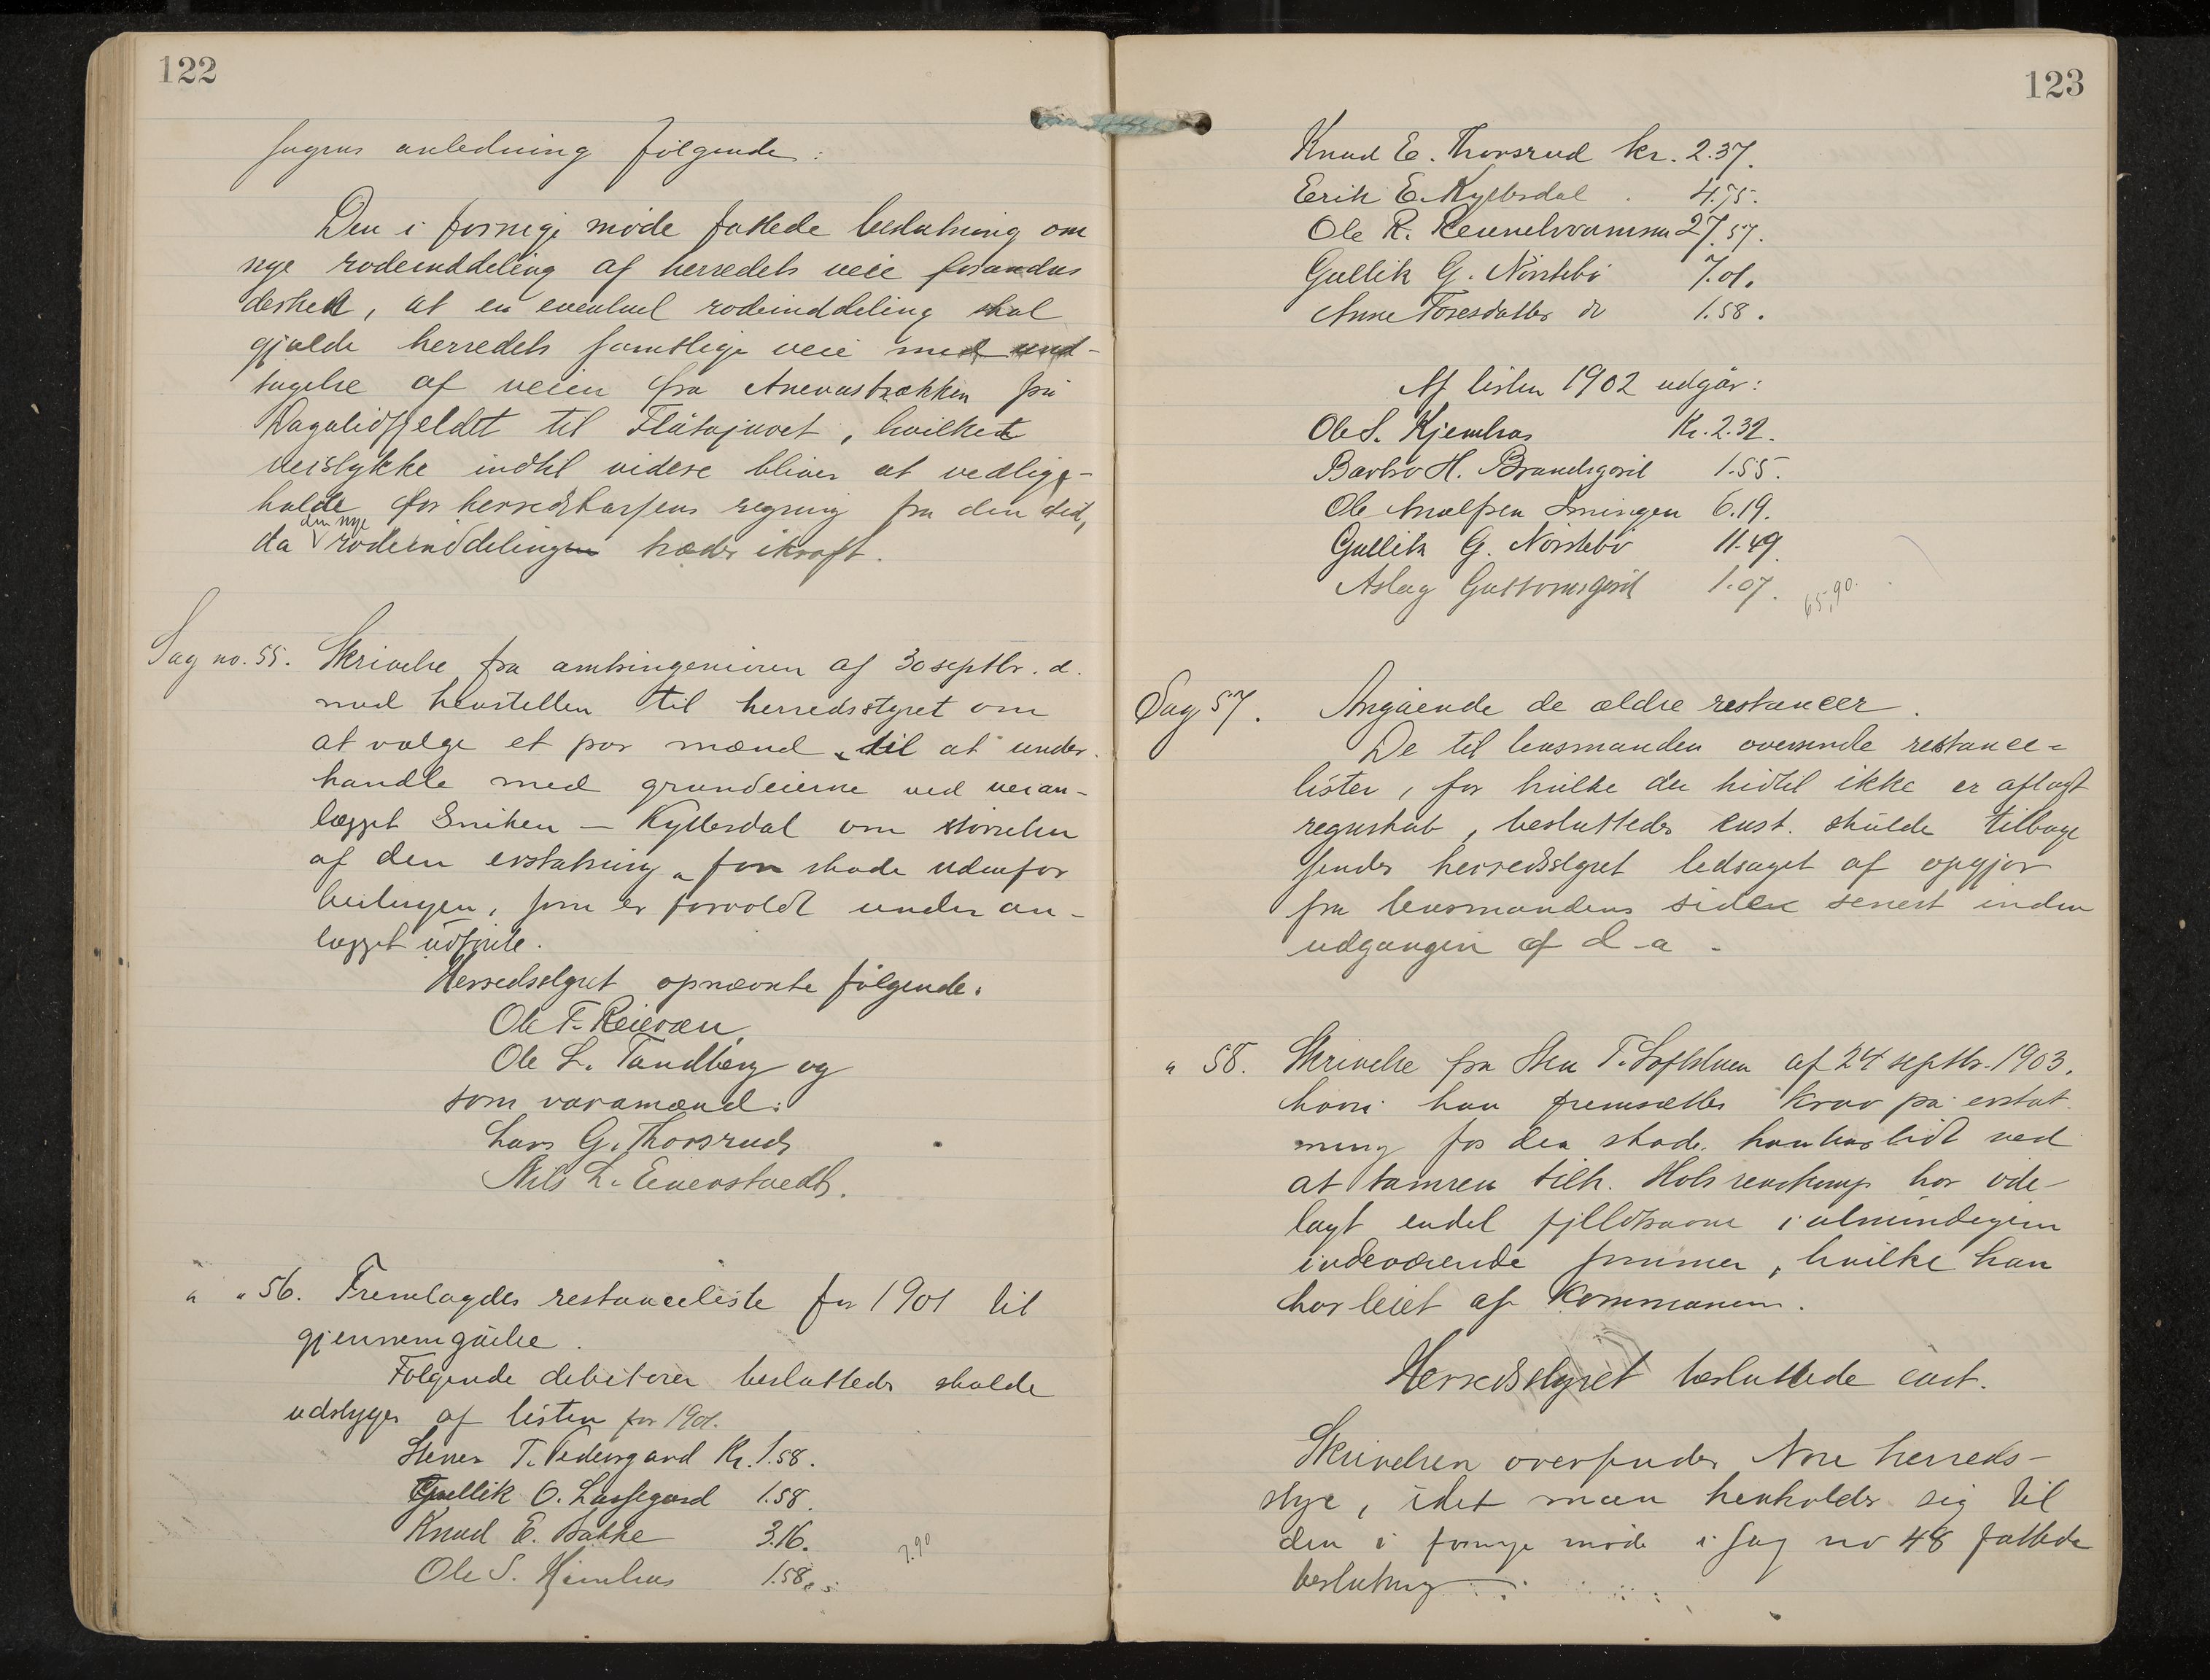 122
sagens anledning følgende:
Den i forrige møde fattede beslutning om
nye rodeinddeling af herredets veie forandres
derhen, at en eventuel rodeinddeling skal
gjælde herredets samtlige veie med und-
tagelse af veien fra til
Dagalifjeldet til Flåtajuvet, hvilket
veistykke indtil videre bliver at vedlige-
holde for herredskassens regning fra den tid,
den nye
da rodeinddelingen træder ikraft.
Sag no. 55. Skrivelse fra amtsingeniøren af 30 septbr. d.
med henstellen til herredsstyret om
at vælge et par mænd til at under-
handle med grundeierne ved veian-
lægget Sniken – Kyllesdal om størrelsen
af den erstatning for skade udenfor
veilinjen, som er forvoldt under an-
lægget udførte.
Herredsstyret opnævnte følgende:
Ole T. Reieren
Ole L. Tandberg og
som varamænd:
Lars G. Thorsrud
Nils L. Evenstvedt.
" " 56. Fremlagdes restanceliste for 1901 til
gjennemgåelse.
Følgende debitorer besluttedes skulde
udstryges af listen for 1901.
Stener T. Vedersgard Kr. 1.58.
Gullik O. Lassegard 1.58.
Knud E. Bakke 3.16.
Ole S. Kjemhus 1.58.
7.90
123
Knud E. Thorsrud kr. 2.37.
Erik E. Kyllesdal 4.75.
Ole R. 27.57.
Gullik G. Nørstebø 7.01.
Anne Toresdatter do 1.58.
Af listen 1902 udgår:
Ole S. Kjemhus Kr. 2.32.
Barbro H. Brandsgård 1.55.
Ole Smingen 6.19.
Gullik G. Nørstebø 11.49.
Aslag Guttormsgård 1.07.
65,90.
Sag 57. Angående de ældre restancer.
De til lensmanden oversendte restance=
lister, for hvilke der hidtil ikke er aflagt
regnskab, besluttedes enst. skulde tilbage
sendes herredsstyret ledsaget af opgjør
fra lensmandens side senest inden
udgangen af d-a.
" 58. Skrivelse fra Sten T. af 24 septbr. 1903.
hvori han fremsætter krav på erstat-
ning for den skade han har lidt ved
at tamren tilh. Hols renskomp. har øde-
lagt endel fjeldhavne i almindingen
indeværende sommer, hvilke han
har leiet af Kommunen.
Herredsstyret besluttede enst.
Skrivelsen oversendes Nore herreds-
stye, idet man henholder sig til
den i forrige møde i sag no 48 fattede
beslutning